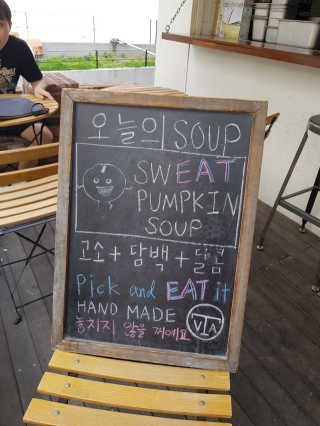 오늘의 SOUP
SWEAT
PUMPKIN
SOUP
고소+담백+달콤
Pick and EAT it
HAND MADE
놓치지 않을 꺼에요
VTA